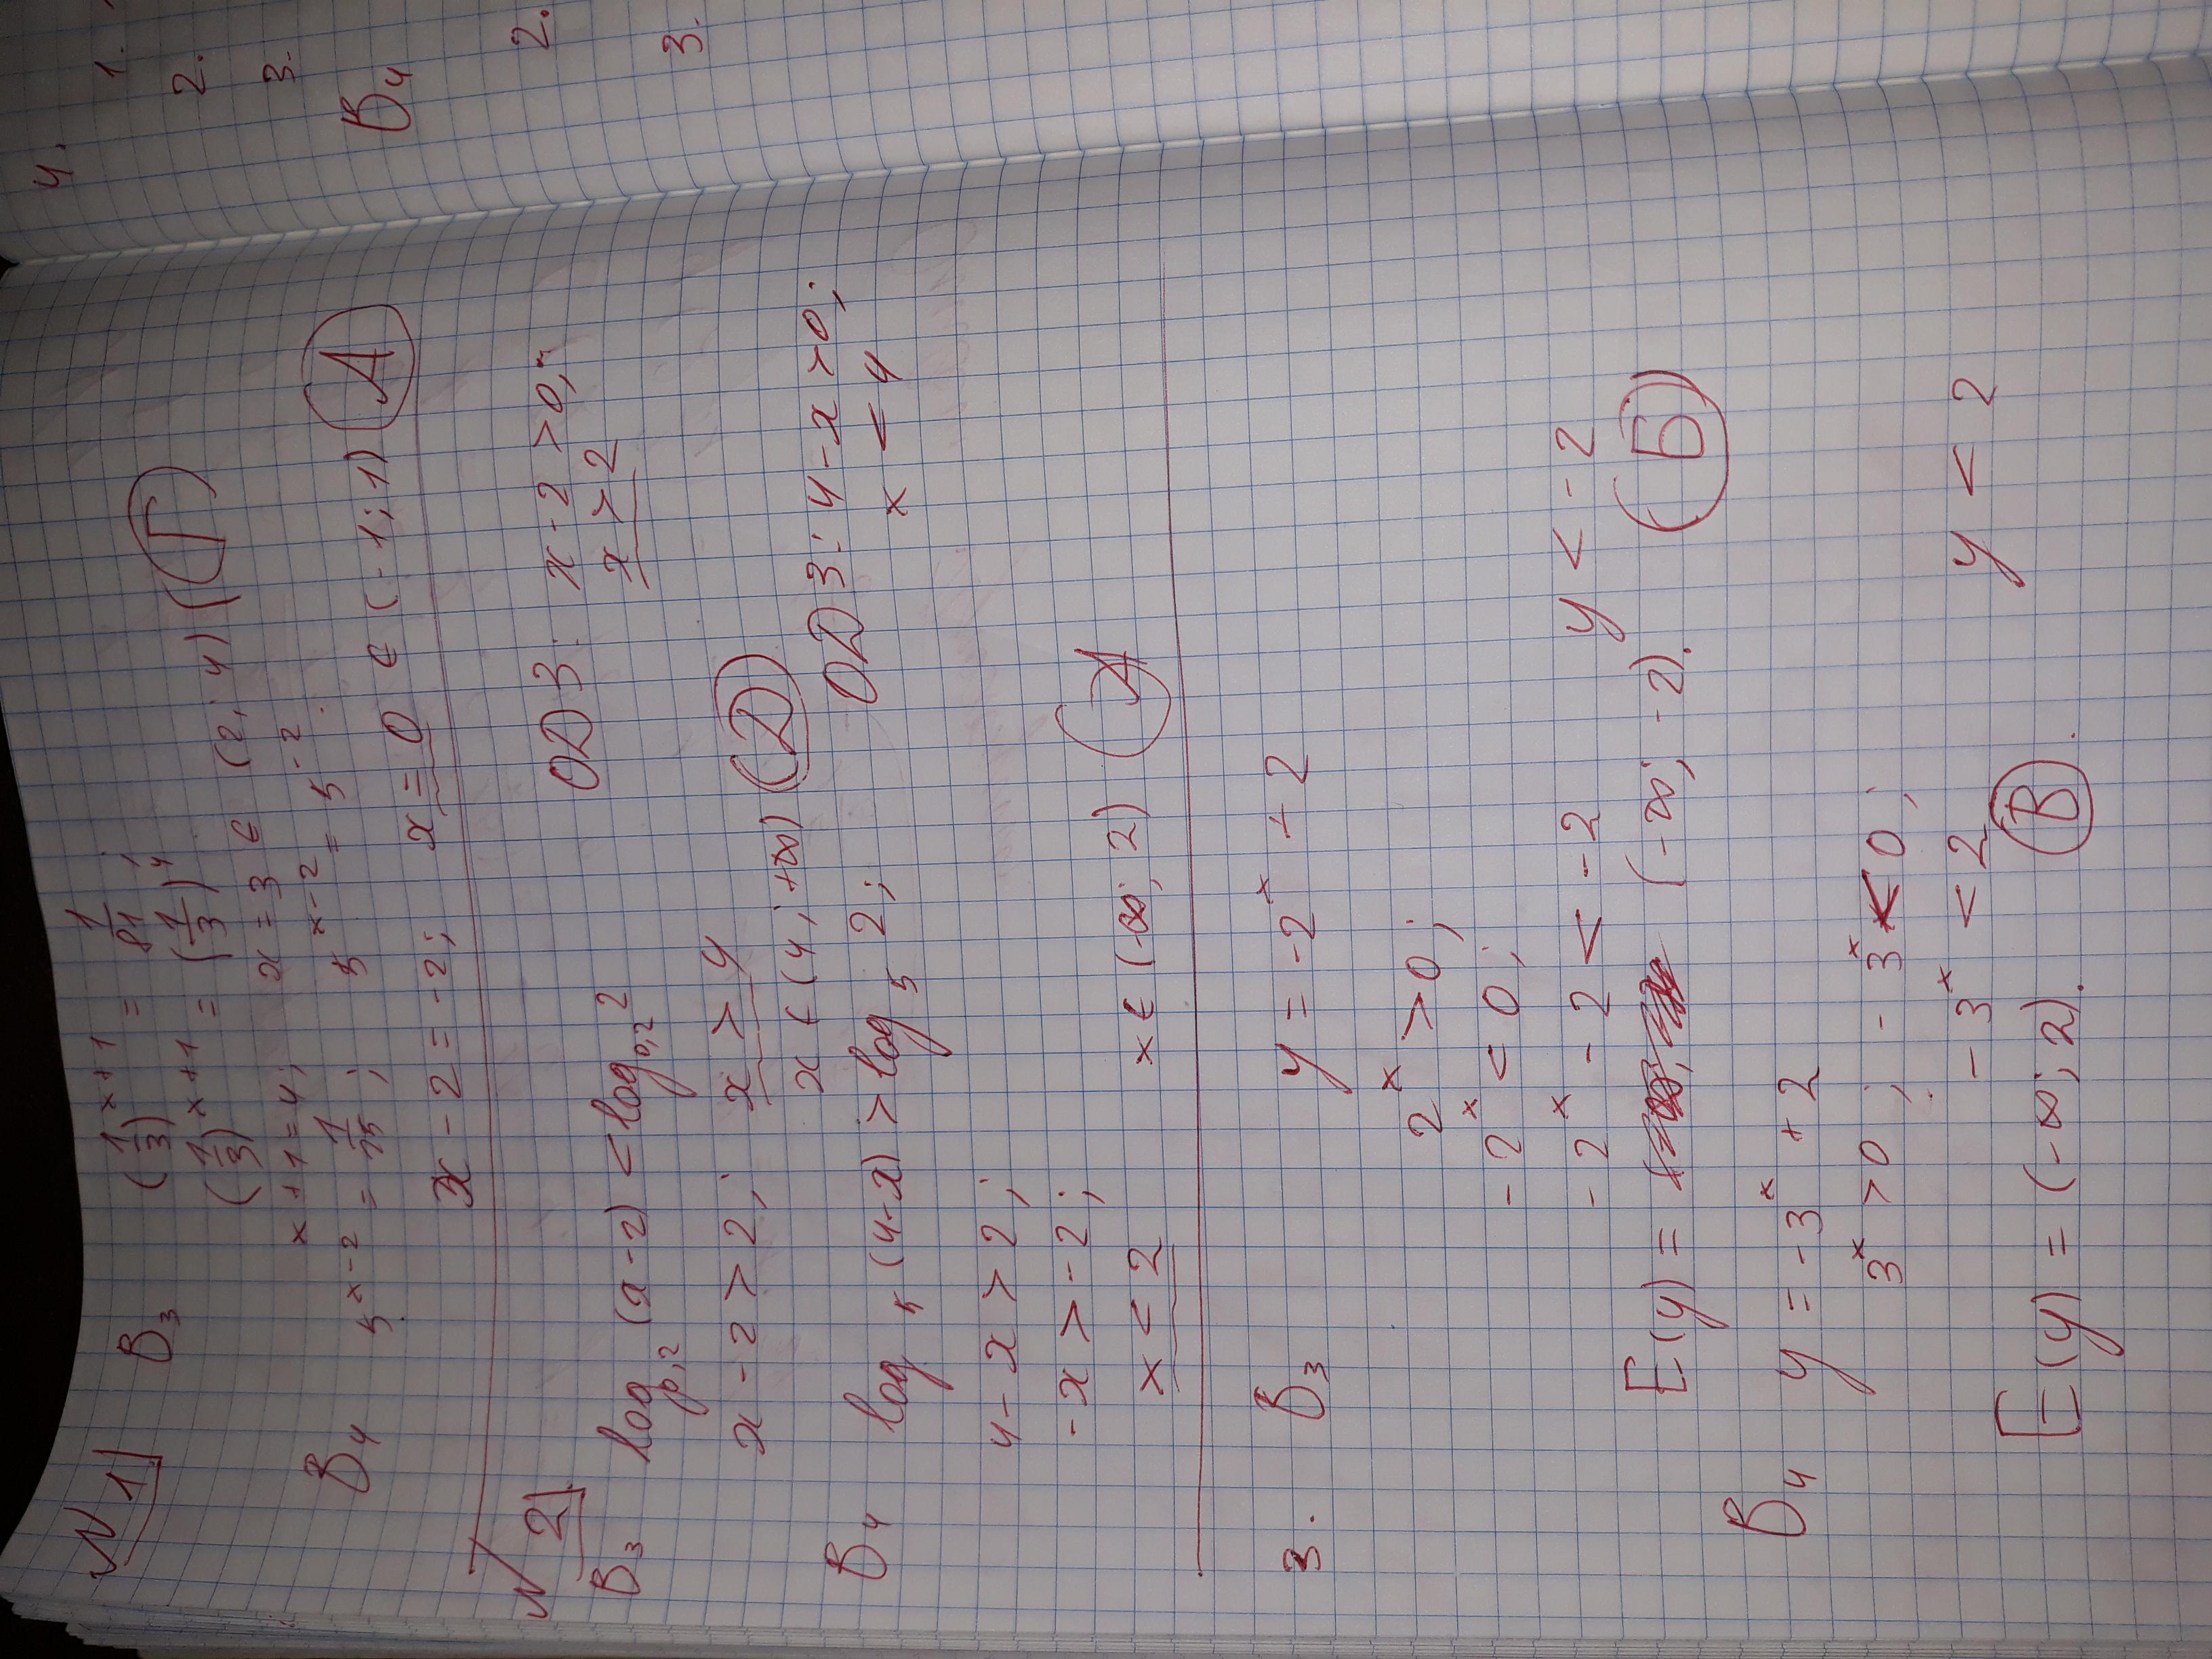 N 1
B3 (1/3)^(x+1) = 1/81;
(1/3)^(x+1) = (1/3)^4
x+1=4; x=3 ∈ (2; 4) (Г)
B4 5^(x-2) = 1/25; 5^(x-2) = 5^(-2)
x-2=-2; x=0 ∈ (-1; 1) (А)
N 2
B3 log_0,2 (x-2) < log_0,2 2 ОДЗ: x-2>0;
x>2
x-2>2; x>4
x ∈ (4; +∞) (Д)
B4 log_5 (4-x) > log_5 2; ОДЗ: 4-x>0;
x<4
4-x>2;
-x>-2;
x<2 x ∈ (-∞; 2) (А)
3. B3 y = -2^x + 2
2^x >0;
-2^x < 0;
-2^x - 2 < -2 y < -2
E(y) = (-∞; -2). (Б)
B4 y = -3^x + 2
3^x >0; -3^x < 0;
-3^x < 2 y < 2
E(y) = (-∞; 2). (В).
4. 1.
2.
3.
B4
2.
3.